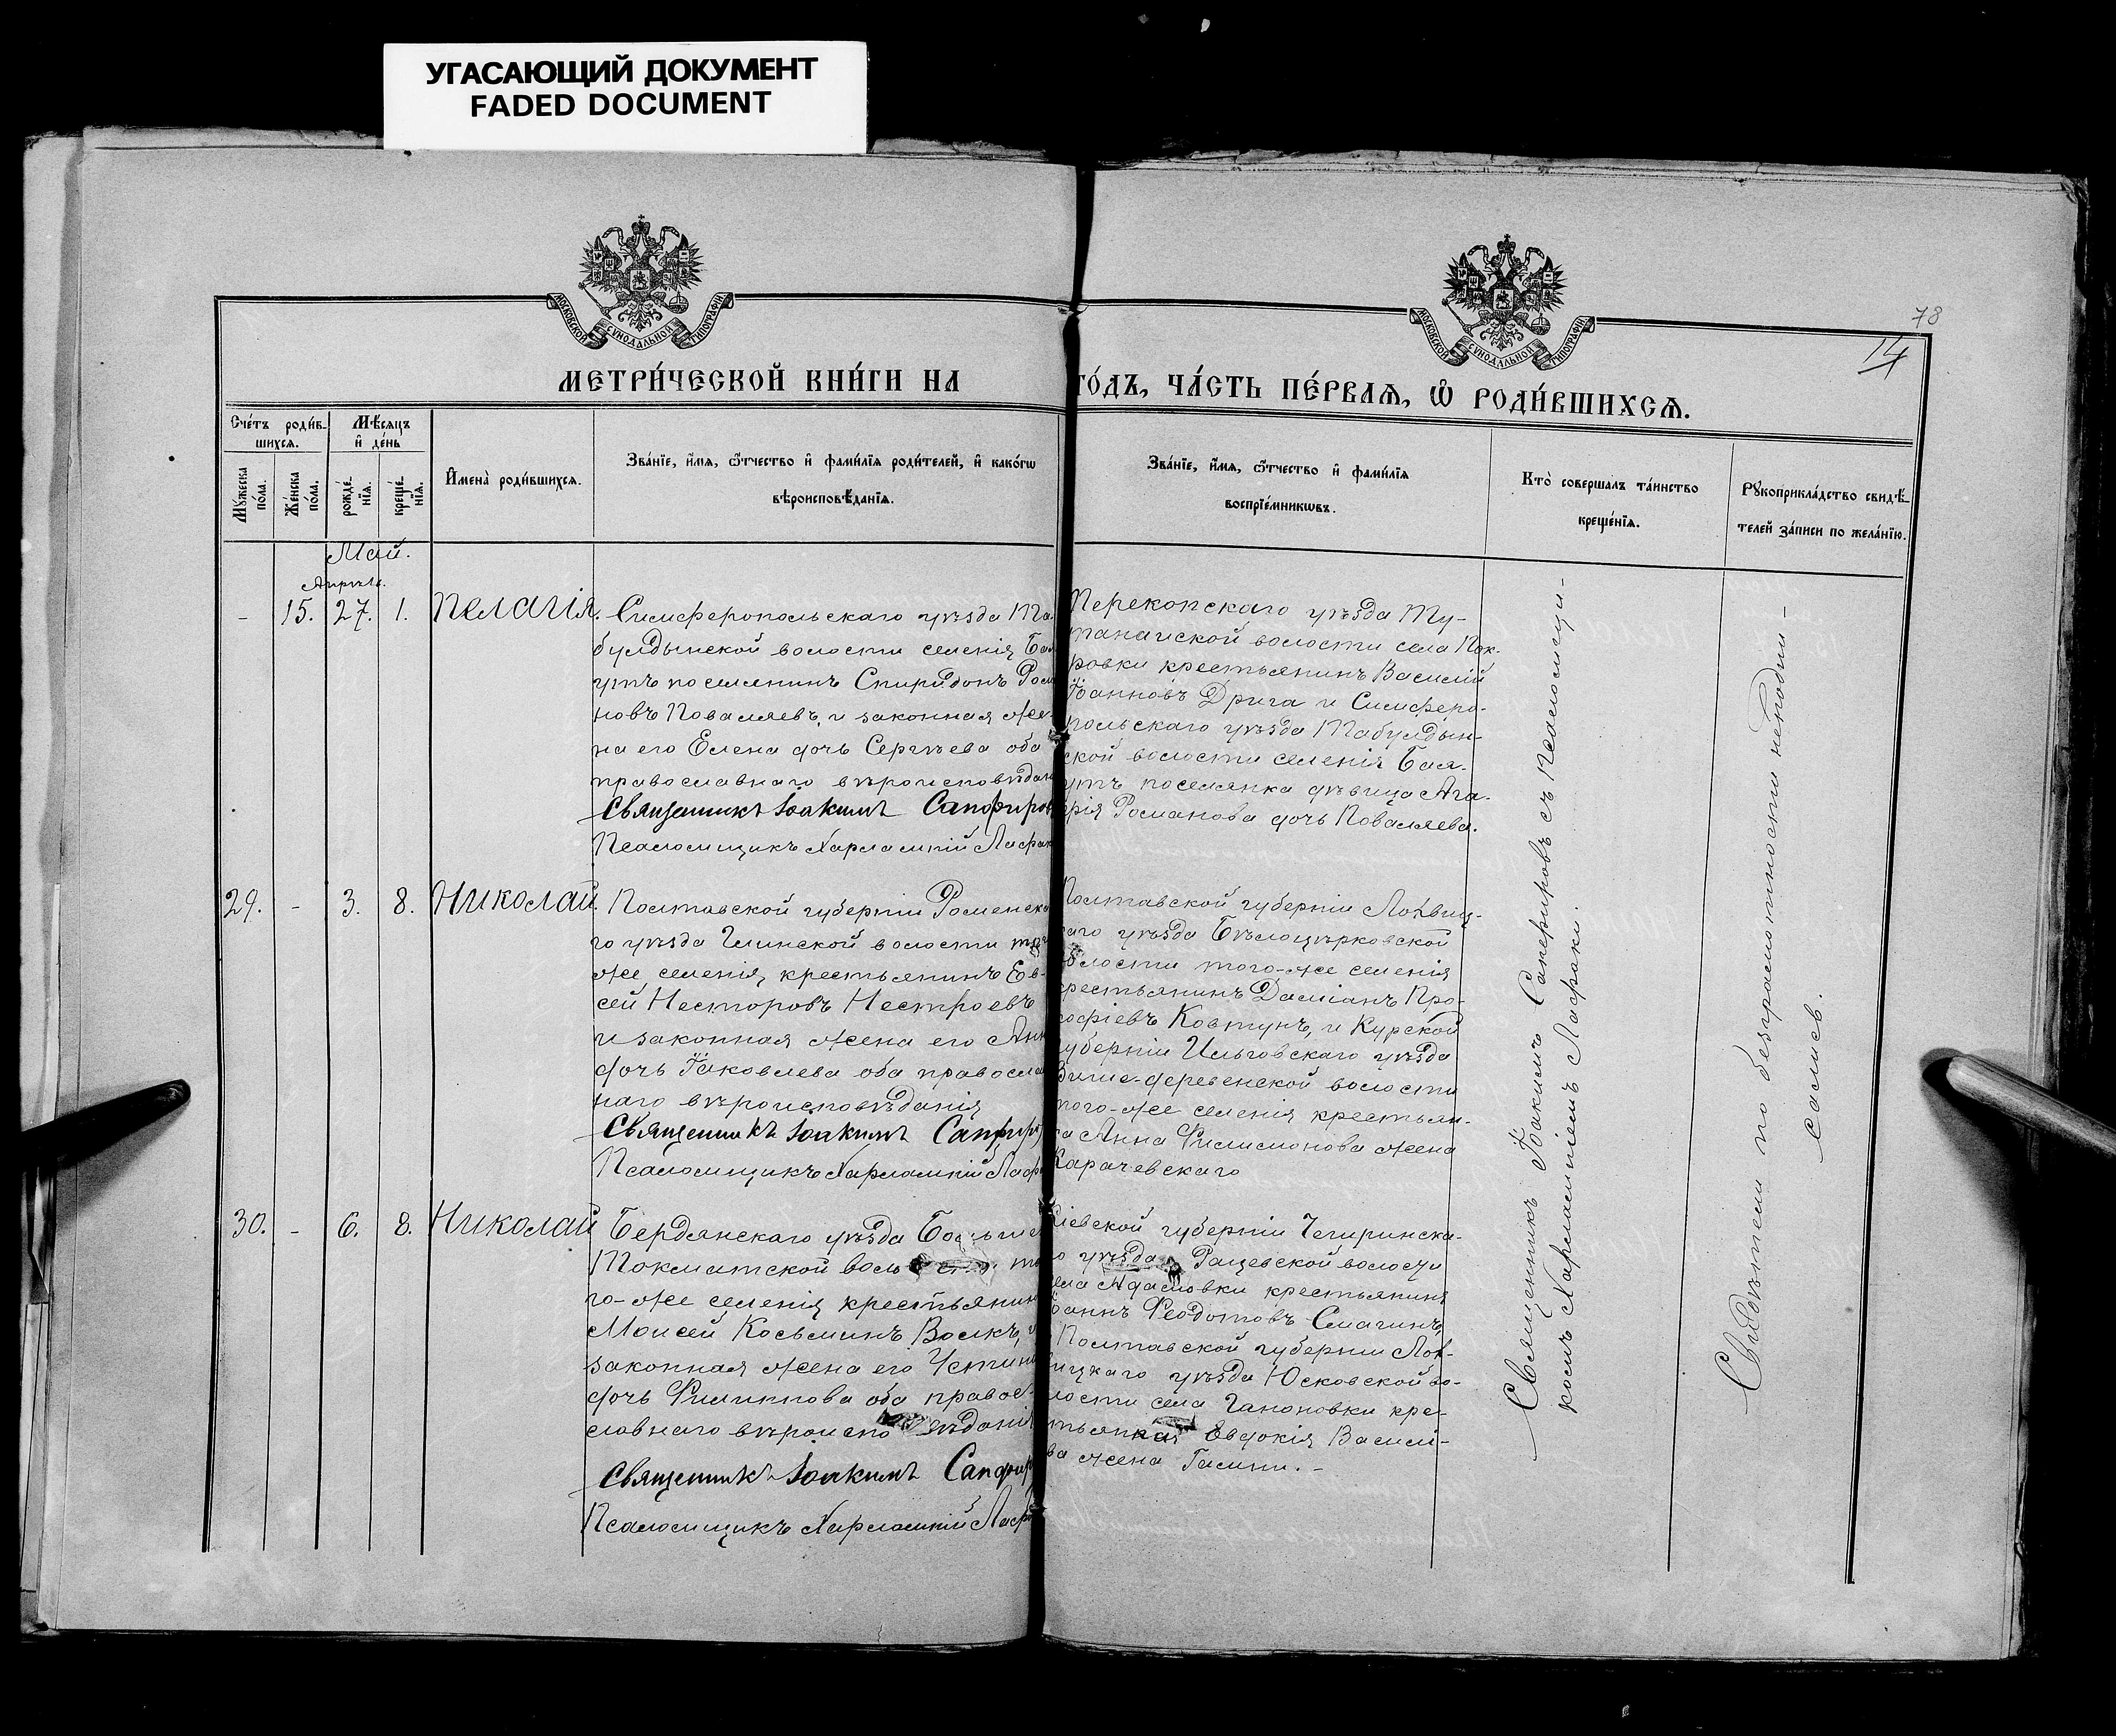 УГАСАЮЩИЙ ДОКУМЕНТ
FADED DOCUMENT
МОСКОВСКОЙ СѴНОДАЛЬНОЙ ТИПОГРАФІИ
МОСКОВСКОЙ СѴНОДАЛЬНОЙ ТИПОГРАФІИ
78
14
МЕТРИ́ЧЕСКОЙ КНИ́ГИ НА
ГО́ДЪ, ЧА́СТЬ ПЕ́РВАѦ, Ѽ РОДИ́ВШИХСѦ.
Сче́тъ роди́в-
шихсѧ.
Мѣ́сяцъ
и҆ де́нь
Мꙋ́жеска
по́ла.
Же́нска
по́ла.
рожде́-
нїѧ.
креще́-
нїѧ.
И҆мена̀ роди́вшихсѧ.
Зва́нїе, и҆́мѧ, ѻ҆́тчество и҆ фамѝлїѧ роди́телей, и҆ како́гѡ
вѣроисповѣ́данїѧ.
Зва́нїе, и҆́мѧ, ѻ҆́тчество и҆ фами́лїѧ
воспрїе́мникѡвъ.
Кто̀ соверша́лъ та́инство
креще́нїѧ.
Рꙋкоприкла́дство свидѣ́-
телей за́писи по жела́нїю.
Май.
Апрѣль.
- 15. 27. 1. Пелагія.
Симферопольскаго уѣзда Та
булдынской волости селенія Ба
утъ поселянинъ Спиридонъ Ром
новъ Поваляевъ, и законная же-
на его Елена дочь Сергѣева оба
православнаго вѣроисповѣдан
Священникъ Іоакимъ Сапфиров
Псаломщикъ Харлампій Лафак
Перекопскаго уѣзда Ту-
танайской волости села Пок-
ровки крестьянинъ Василій
Іоанновъ Дрига и Симферо-
польскаго уѣзда Табулдын-
ской волости селенія Бая-
утъ поселянка дѣвица Ага-
фія Романова дочь Поваляева.
29. - 3. 8. Николай.
Полтавской губерніи Роменска
го уѣзда Глинской волости того
же селенія, крестьянинъ Ев-
сей Несторовъ Нестроевъ
и законная жена его Анн
дочь Іаковлева оба правосла
наго вѣроисповѣданія
Священникъ Іоакимъ Сапфир
Псаломщикъ Харлампій Лаф
Полтавской губерніи Лохвиц-
каго уѣзда Бѣлоцерковской
волости того-же селенія
крестьянинъ Даміанъ Про-
кофіевъ Ковтунъ, и Курской
губерніи Льговскаго уѣзда
деревенской волости
того-же селенія крестьян-
ка Анна Филимонова жена
Карачевскаго
30. - 6. 8. Николай
Бердянскаго уѣзда Больше
Токматской волости то
го-же селенія крестьянин
Моисей Косьминъ Волкъ, и
законная жена его Устина
дочь Филиппова оба правос-
лавнаго вѣроисповѣданія
Священникъ Іоакимъ Сапфир
Псаломщикъ Харлампій Лафр
Кіевской губерніи Чегиринска-
го уѣзда Рацевской волости
села Адамовки крестьянинъ
Іоаннъ Феодотовъ Смагинъ,
Полтавской губерніи Лох-
вицкаго уѣзда Юсковской во-
лости села Гапоновки кре-
стьянка Евдокія Василі-
ва жена Гамини. -
Священникъ Іоакимъ Сапфировъ съ псаломщи-
комъ Харлампіемъ Лафаки.
Свидѣтели по безграмотности неподпи-
сались.